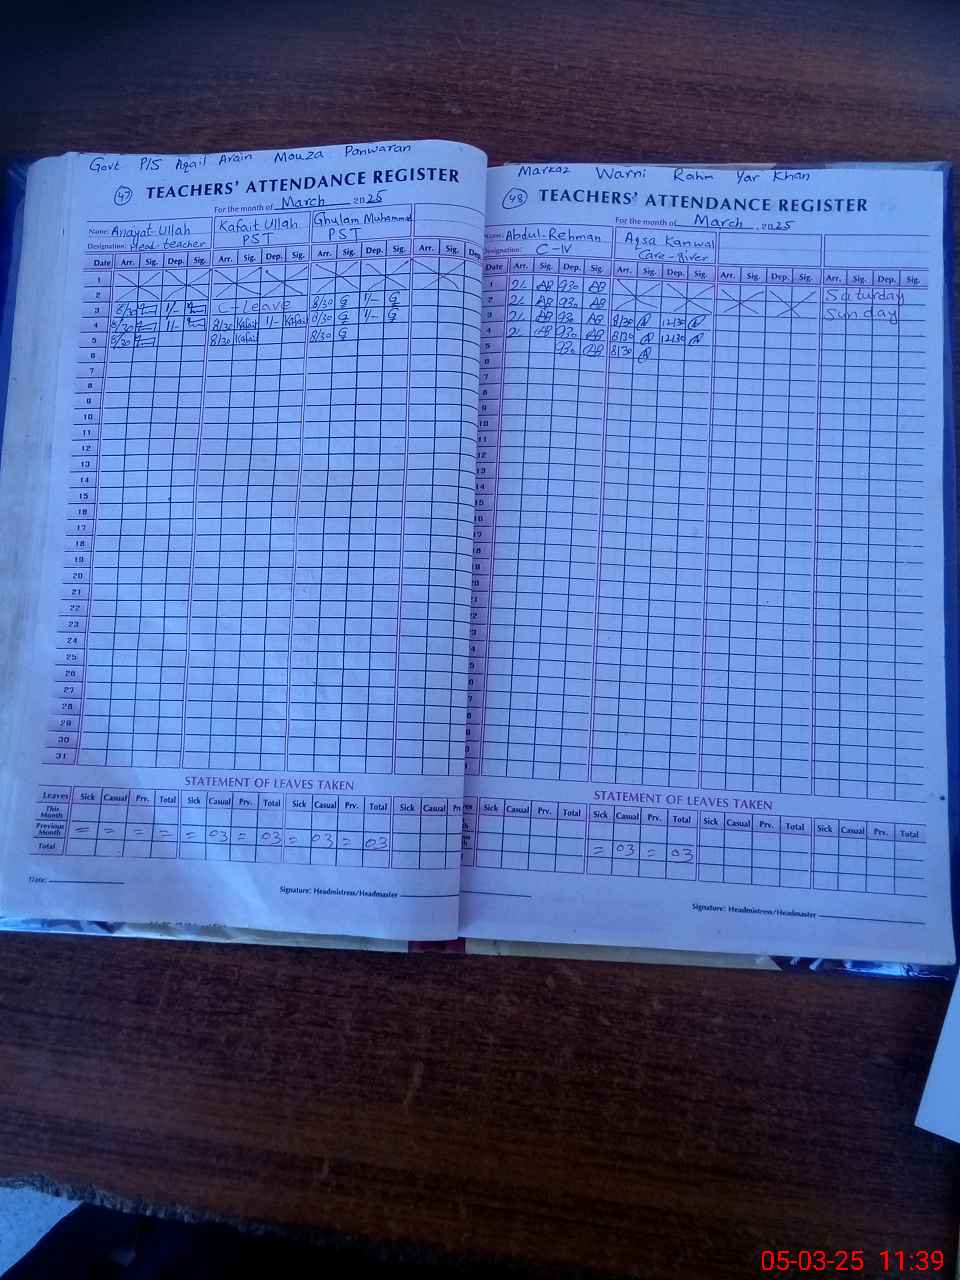 Govt P/S Aqail Arain Mouza Panwaran
47 TEACHERS' ATTENDANCE REGISTER
For the month of March 2025
Name: Anayat-Ullah Kafait Ullah Ghulam Muhammad
Designation: Head-teacher PST PST
Date Arr. Sig. Dep. Sig. Arr. Sig. Dep. Sig. Arr. Sig. Dep. Sig. Arr. Sig. Dep.
1
2
3 8/30 1/- C-Leave 8/30 G 1/- G
4 8/30 1/- 8/30 Kafait 1/- Kafait 8/30 G 1/- G
5 8/30 8/30 Kafait 8/30 G
6
7
8
9
10
11
12
13
14
15
16
17
18
19
20
21
22
23
24
25
26
27
28
29
30
31
STATEMENT OF LEAVES TAKEN
Leaves Sick Casual Prv. Total Sick Casual Prv. Total Sick Casual Prv. Total Sick Casual
This Month
Previous Month = = = = = 03 = 03 = 03 = 03
Total
Date:
Signature: Headmistress/Headmaster
Markaz Warni Rahm Yar Khan
48 TEACHERS' ATTENDANCE REGISTER
For the month of March 2025
Name: Abdul-Rehman Aqsa Kanwal
Designation: C-IV Care-giver
Date Arr. Sig. Dep. Sig. Arr. Sig. Dep. Sig. Arr. Sig. Dep. Sig. Arr. Sig. Dep. Sig.
1 2/- AR 930 AR Saturday
2 2/- AR 930 AR Sunday
3 2/- AR 930 AR 8/30 12/30
4 2/- AR 930 AR 8/30 12/30
5 930 AR 8/30
6
7
8
9
10
11
12
13
14
15
16
17
18
19
20
21
22
STATEMENT OF LEAVES TAKEN
Sick Casual Prv. Total Sick Casual Prv. Total Sick Casual Prv. Total Sick Casual Prv. Total
= 03 = 03
Signature: Headmistress/Headmaster
05-03-25 11:39